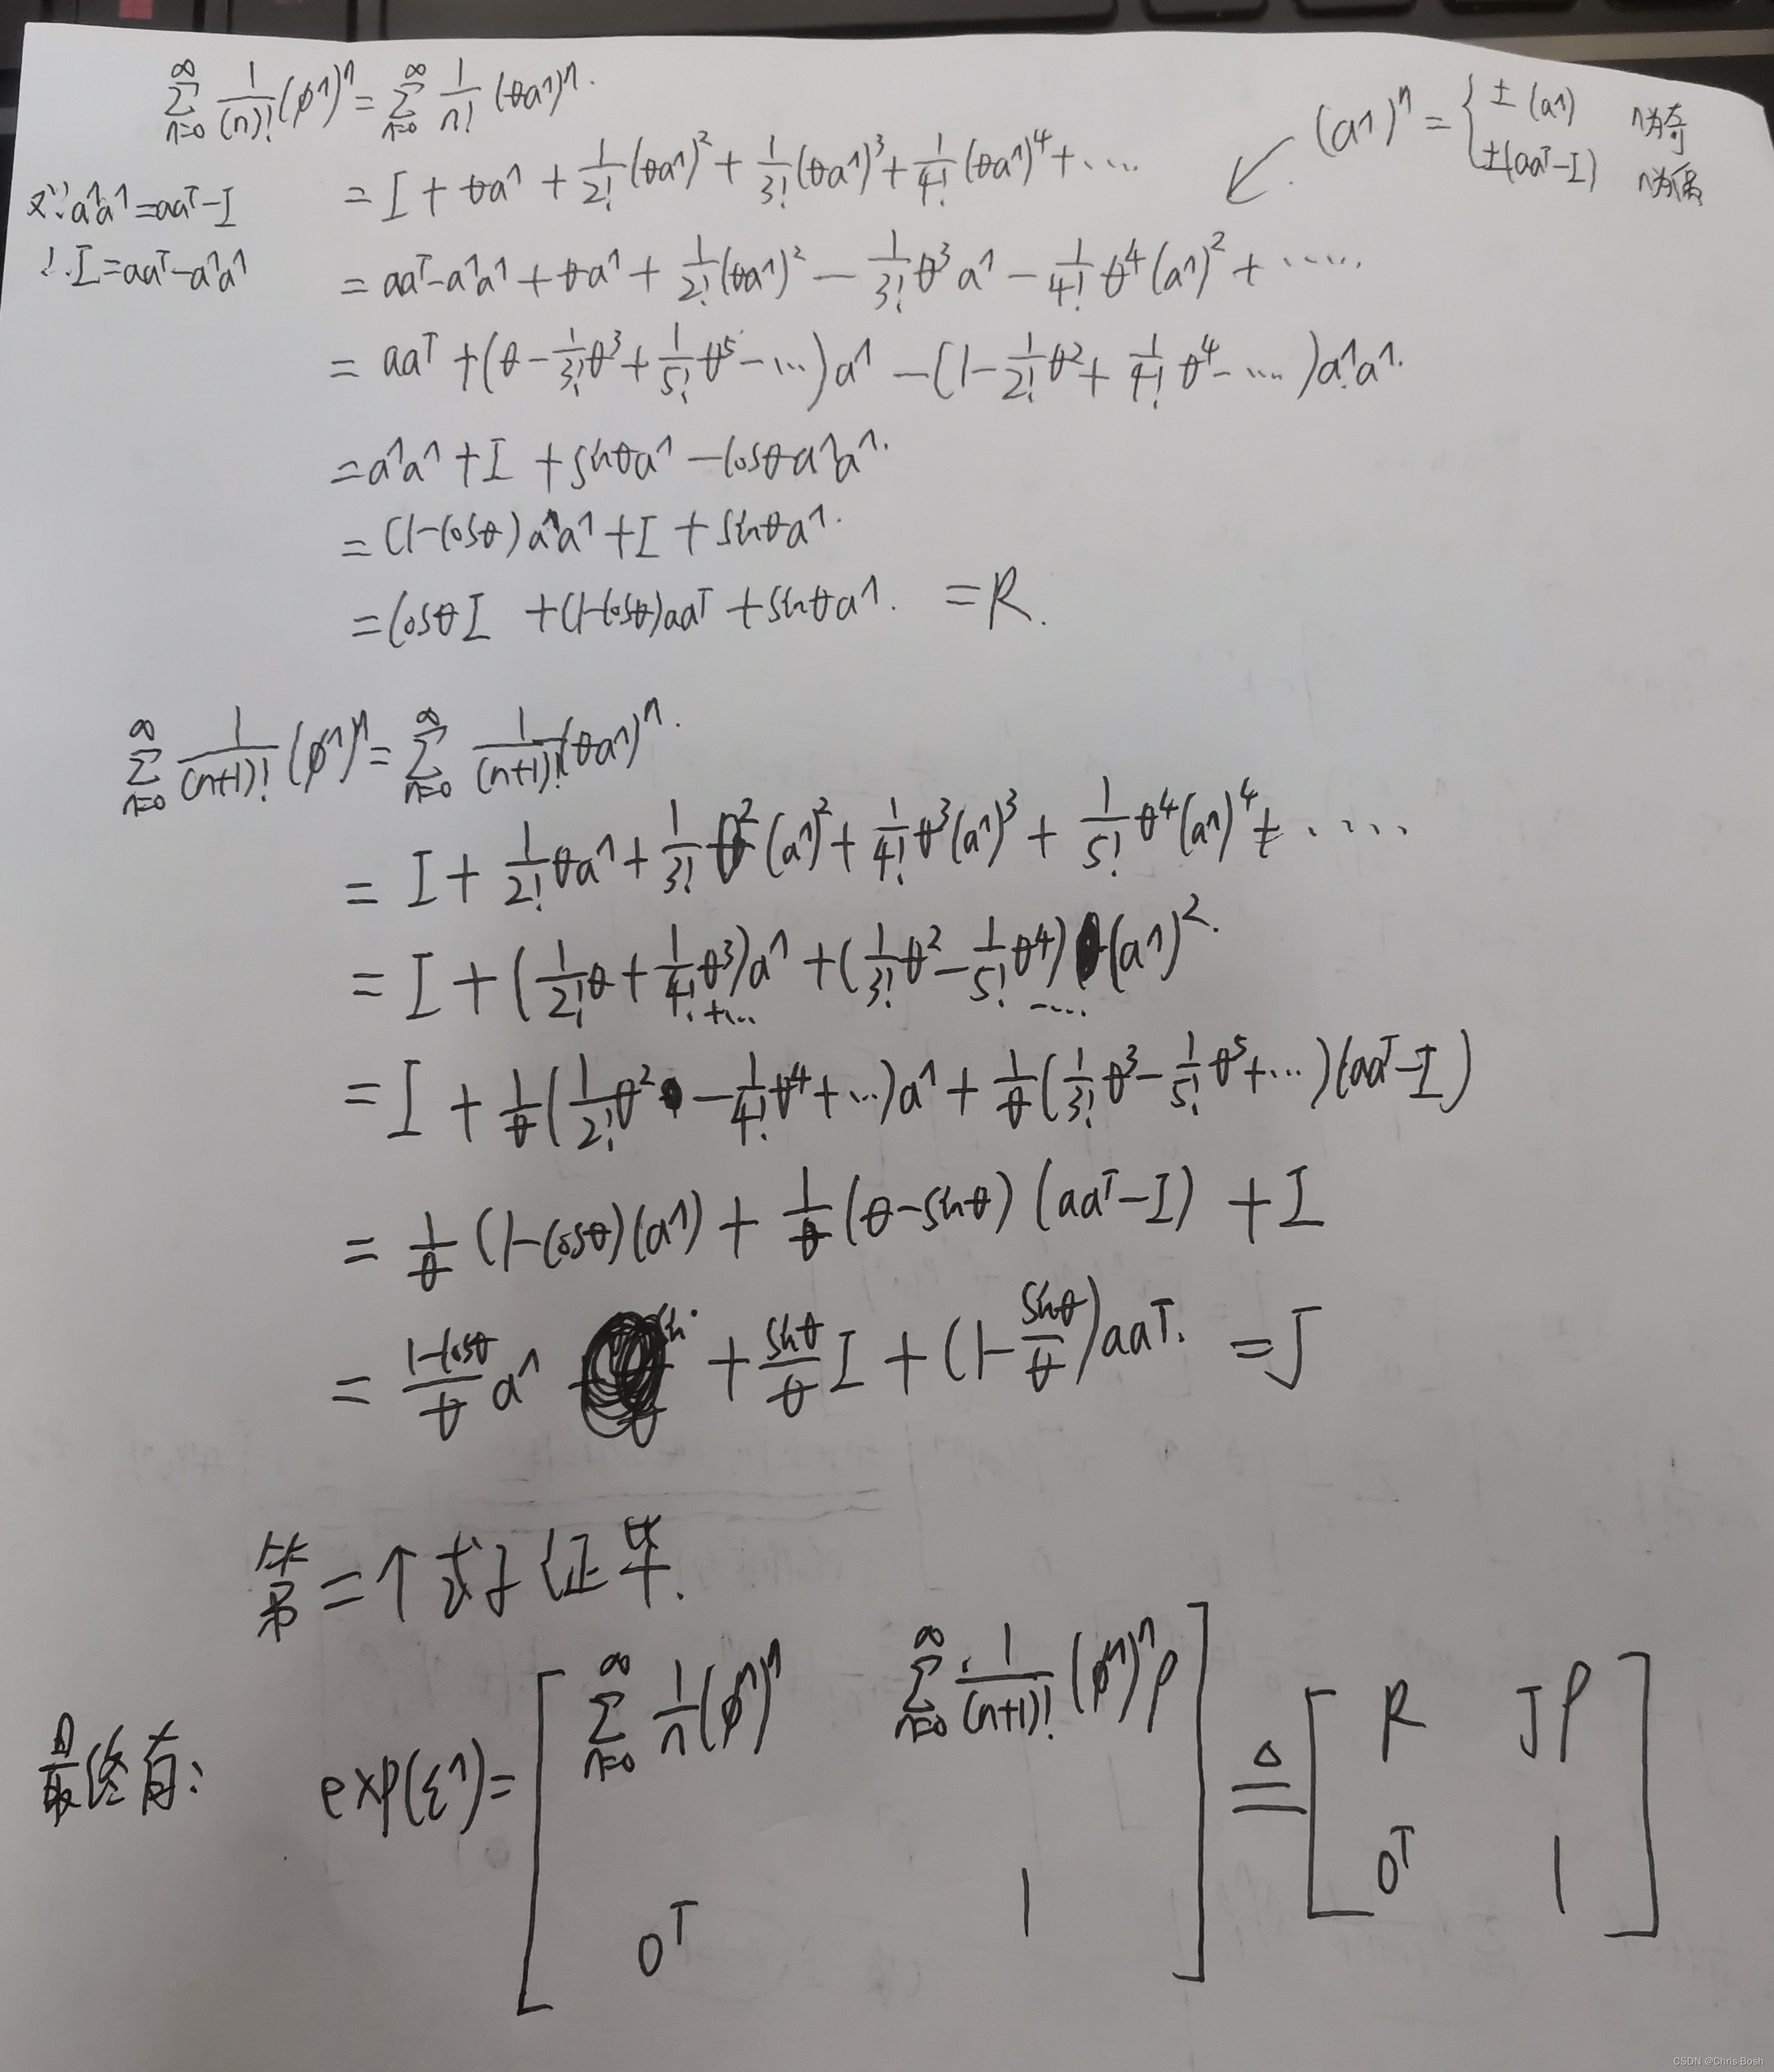 ∞∑n=0 1/(n)! (ϕ^)ⁿ = ∞∑n=0 1/n! (θa^)ⁿ.
(a^)ⁿ = { ±(a^) n为奇
±(aaᵀ-I) n为偶
= I + θa^ + 1/2! (θa^)² + 1/3! (θa^)³ + 1/4! (θa^)⁴ + ····
又∵ a^a^ = aaᵀ-I
∴ I = aaᵀ-a^a^
= aaᵀ-a^a^ + θa^ + 1/2! (θa^)² - 1/3! θ³a^ - 1/4! θ⁴(a^)² + ······
= aaᵀ + (θ - 1/3! θ³ + 1/5! θ⁵ - ···)a^ - (1 - 1/2! θ² + 1/4! θ⁴ - ····)a^a^.
= a^a^ + I + sinθa^ - cosθa^a^.
= (1-cosθ)a^a^ + I + sinθa^.
= cosθI + (1-cosθ)aaᵀ + sinθa^. = R.
∞∑n=0 1/(n+1)! (ϕ^)ⁿ = ∞∑n=0 1/(n+1)! (θa^)ⁿ.
= I + 1/2! θa^ + 1/3! θ²(a^)² + 1/4! θ³(a^)³ + 1/5! θ⁴(a^)⁴ + ····
= I + (1/2! θ + 1/4! θ³ +···)a^ + (1/3! θ² - 1/5! θ⁴ ····)(a^)².
= I + 1/θ (1/2! θ² - 1/4! θ⁴ + ···)a^ + 1/θ (1/3! θ³ - 1/5! θ⁵ + ···)(aaᵀ-I)
= 1/θ (1-cosθ)(a^) + 1/θ (θ-sinθ)(aaᵀ-I) + I
= (1-cosθ)/θ a^ + sinθ/θ I + (1 - sinθ/θ)aaᵀ. = J
第二个式子证毕.
最终有: exp(ξ^) = [ ∞∑n=0 1/n (ϕ^)ⁿ ∞∑n=0 1/(n+1)! (ϕ^)ⁿρ ] ≜ [ R Jρ ]
0ᵀ 1 0ᵀ 1
CSDN @Chris·Bosh